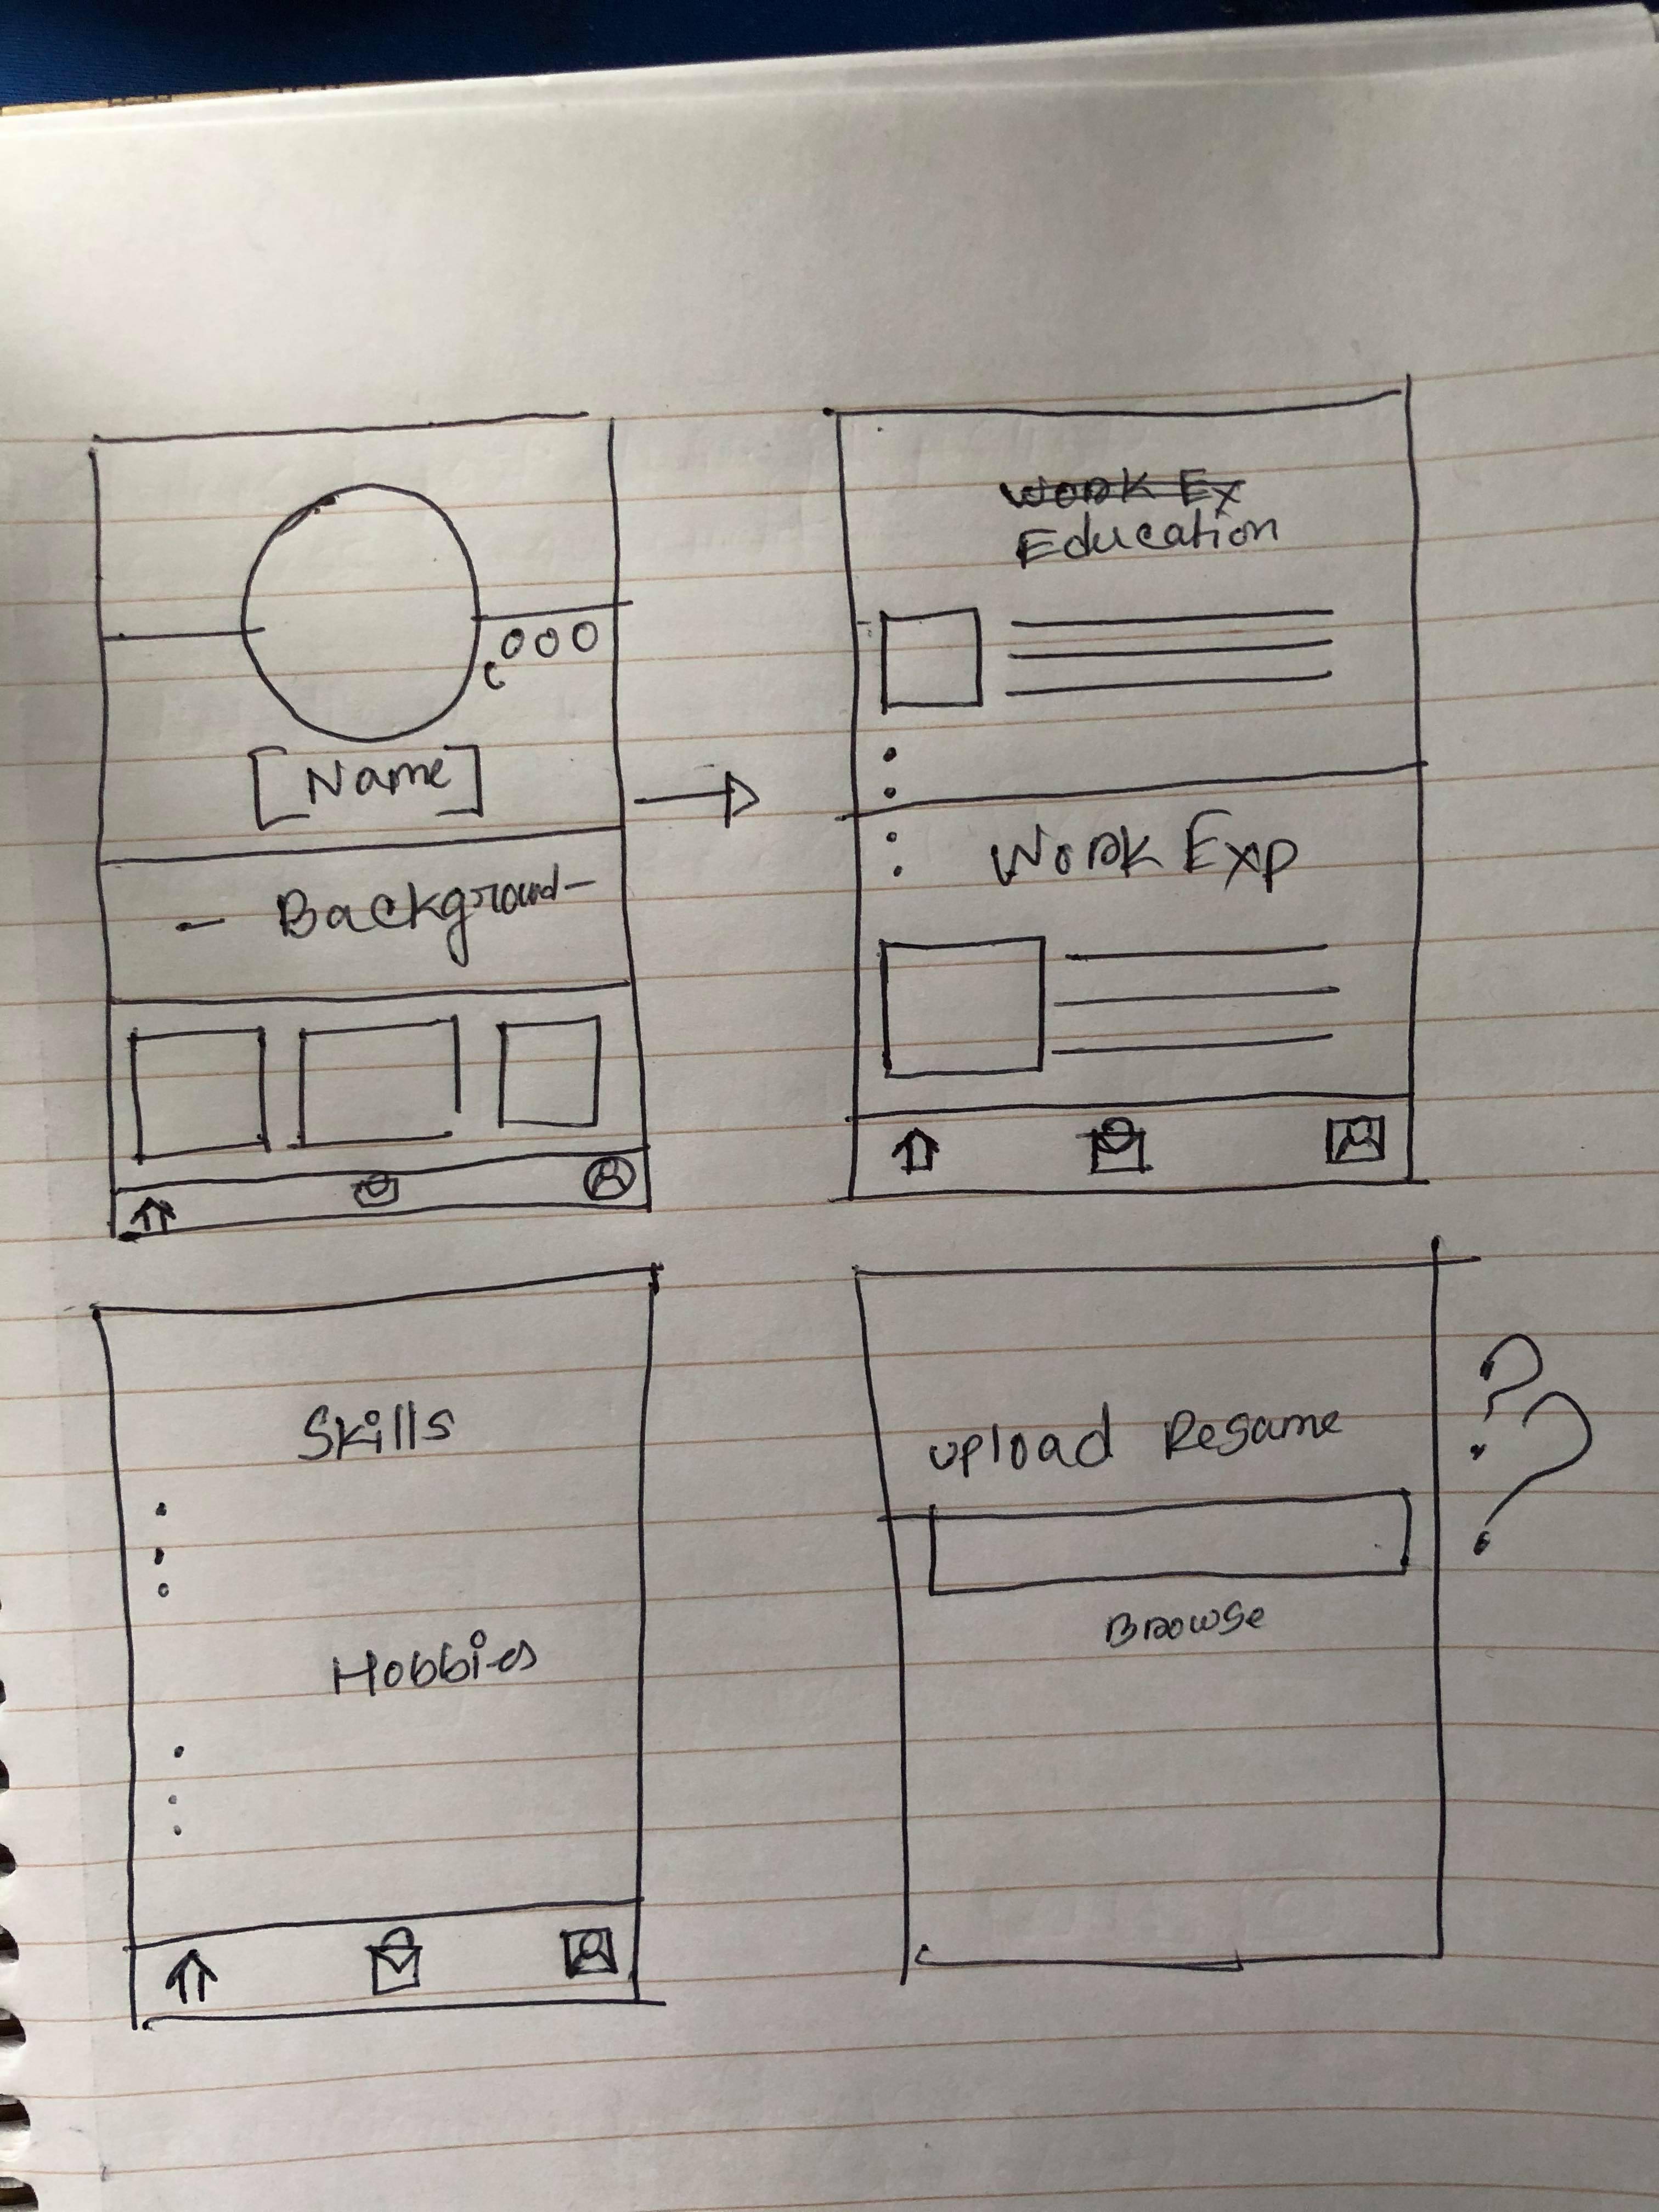 [Name]
- Background -
Work Ex
Education
Work Exp
Skills
Hobbies
Upload Resame
Browse
??